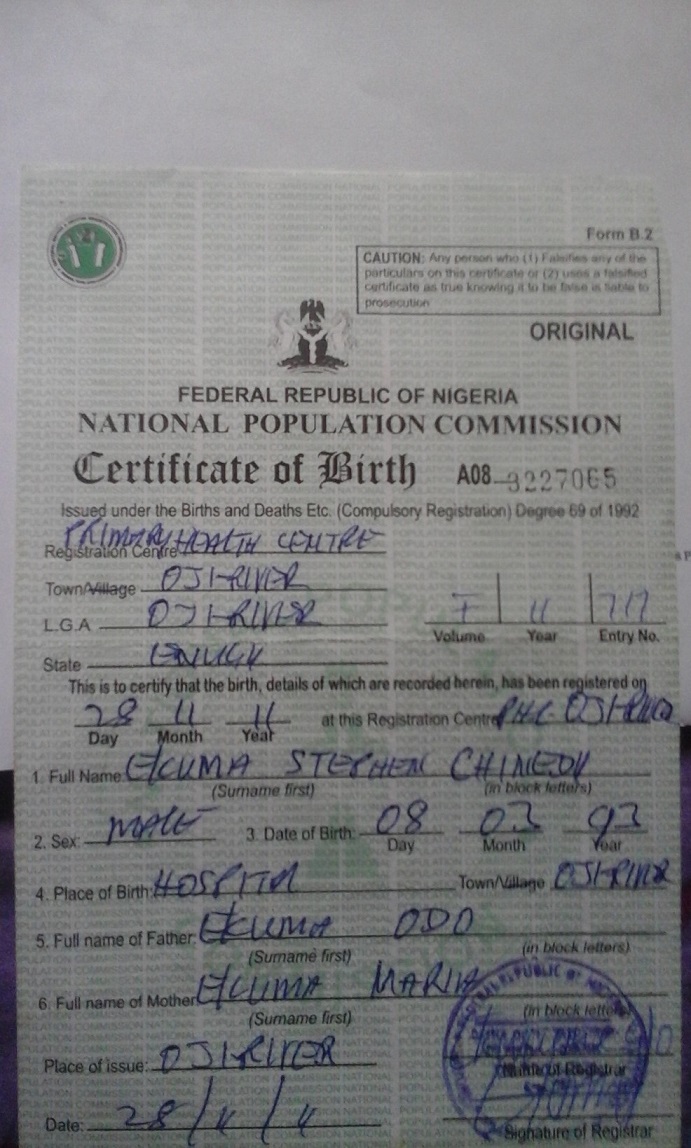 Form B.2
CAUTION: Any person who (1) Falsifies any of the
particulars on this certificate or (2) uses a falsified
certificate as true knowing it to be false is liable to
prosecution
ORIGINAL
FEDERAL REPUBLIC OF NIGERIA
NATIONAL POPULATION COMMISSION
Certificate of Birth A08 9227065
Issued under the Births and Deaths Etc. (Compulsory Registration) Degree 69 of 1992
Registration Centre PRIMARY HEALTH CENTRE
Town/Village OJI-RIVER
L.G.A OJI-RIVER
State ENUGU
Volume Year 11 Entry No. 717
This is to certify that the birth, details of which are recorded herein, has been registered on
28 11 11 at this Registration Centre PHC OJI-RIVER
Day Month Year
1. Full Name: EKUMA STEPHEN CHINEDU
(Surname first) (in block letters)
2. Sex: MALE 3. Date of Birth: 08 03 93
Day Month Year
4. Place of Birth: HOSPITAL Town/Village OJI-RIVER
5. Full name of Father: EKUMA ODO
(Surname first) (in block letters)
6. Full name of Mother EKUMA MARIA
(Surname first) (in block letters)
Place of issue: OJI-RIVER
Name of Registrar
Date: 28/11/11
Signature of Registrar